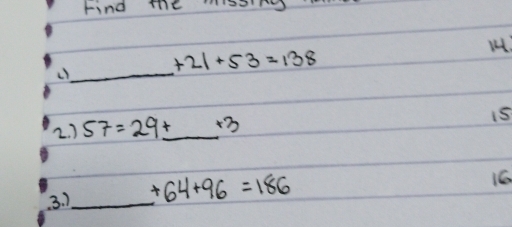 Find the missing
1.) ________ +21+53=138
14.
2.) 57=29+____+3
15
3.) ______ +64+96 =186
16